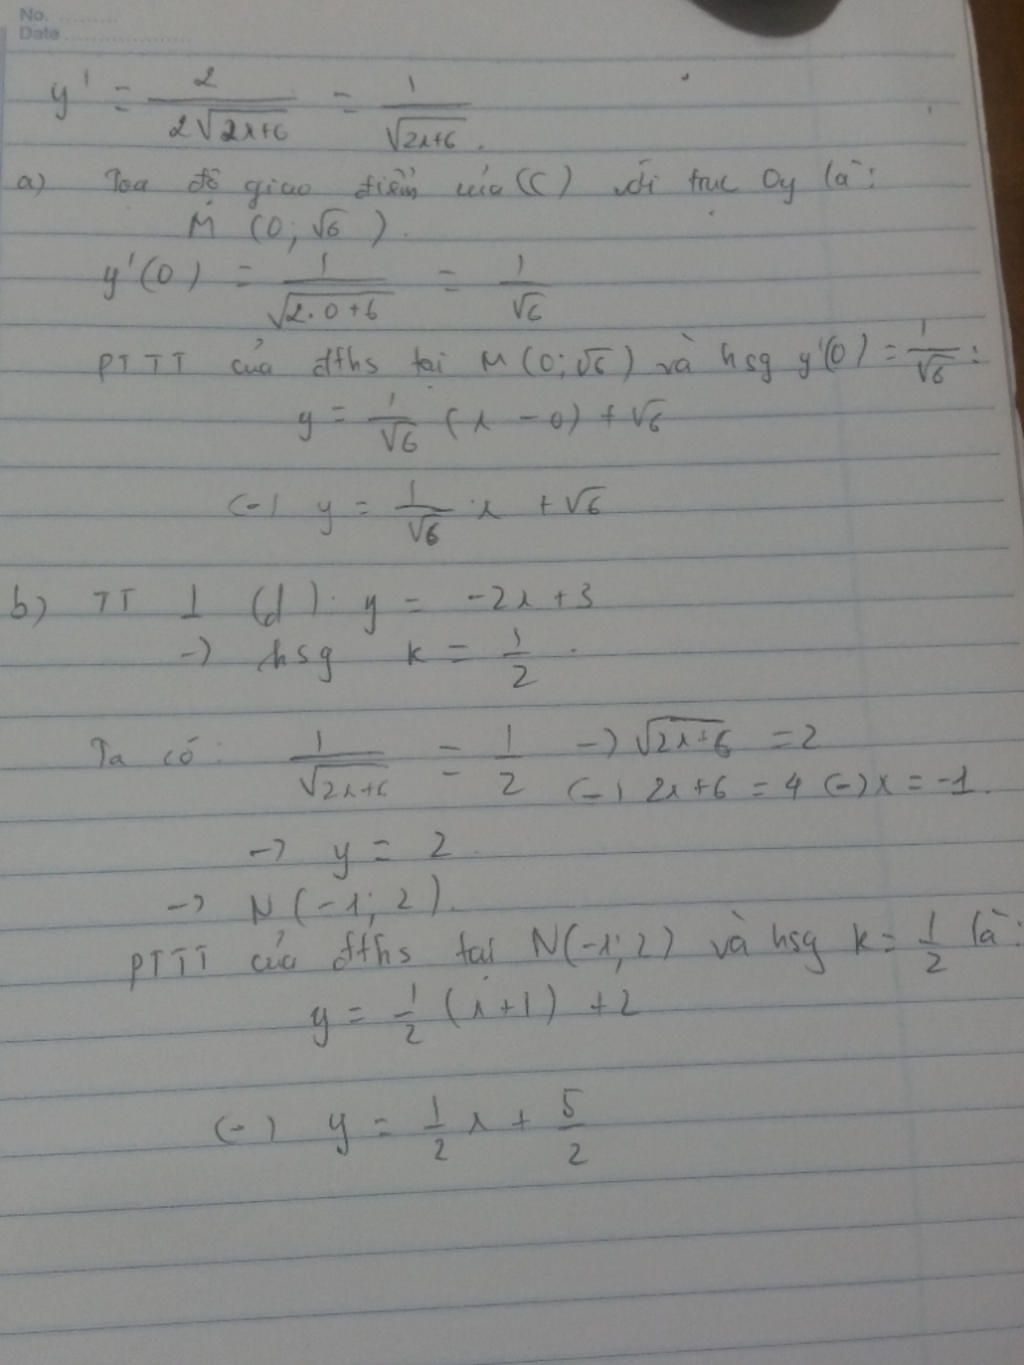 No. ..........
Date ....................
y' = 2/(2√(2x+6)) = 1/√(2x+6).
a) Toạ độ giao điểm của (C) với trục Oy là:
M (0; √6).
y'(0) = 1/√(2.0+6) = 1/√6
PTTT của đths tại M(0; √6) và hsg y'(0) = 1/√6 :
y = 1/√6 (x - 0) + √6
(-) y = 1/√6 . x + √6
b) TT ⊥ (d): y = -2x + 3
-) hsg k = 1/2 .
Ta có: 1/√(2x+6) = 1/2 -) √(2x+6) = 2
(-) 2x+6 = 4 (-) x = -1.
-> y = 2
-> N(-1; 2).
PTTT của đths tại N(-1; 2) và hsg k = 1/2 là:
y = 1/2 (x+1) + 2
(-) y = 1/2 x + 5/2